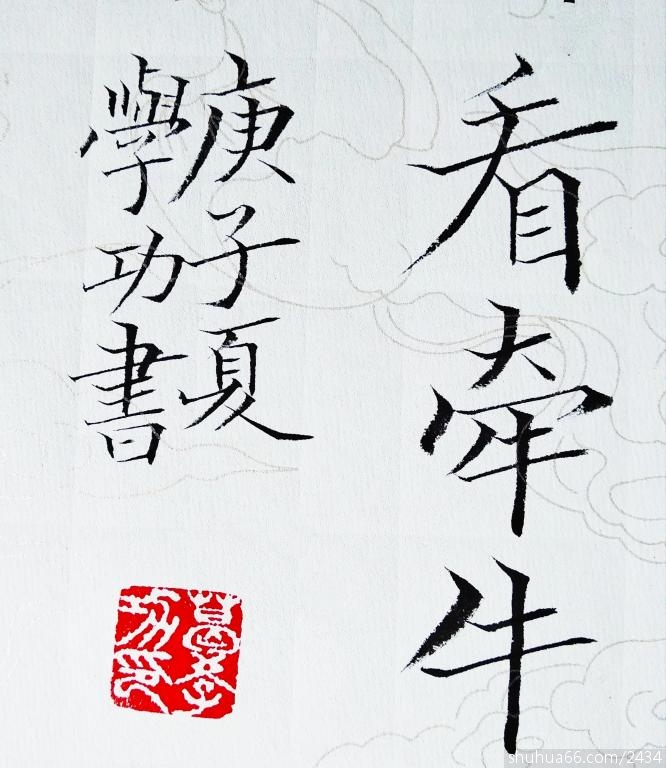 看牵牛
庚子夏
學功書
shuhua66.com/2434